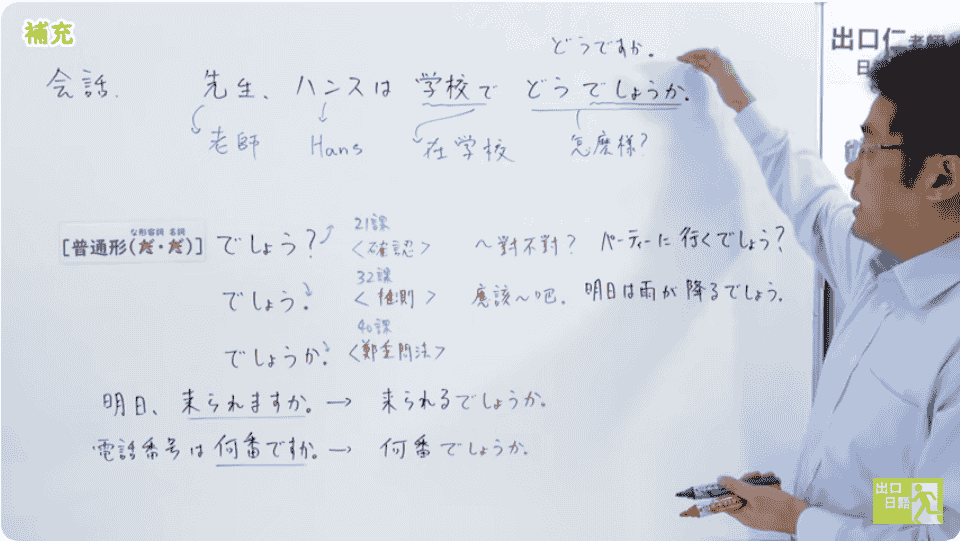 補充
出口仁老師
日
どうですか。
会話. 先生、ハンスは 学校で どうでしょうか.
老師 Hans 在学校 怎麼様?
21課
な形容詞 名詞
[普通形(だ・だ)] でしょう? 〈確認〉 ~對不對? パーティーに 行くでしょう?
32課
でしょう. 〈推測〉 應該~吧. 明日は雨が 降るでしょう.
40課
でしょうか. 〈鄭重問法〉
明日、来られますか。→ 来られるでしょうか.
電話番号は 何番ですか。→ 何番でしょうか.
出口
日語